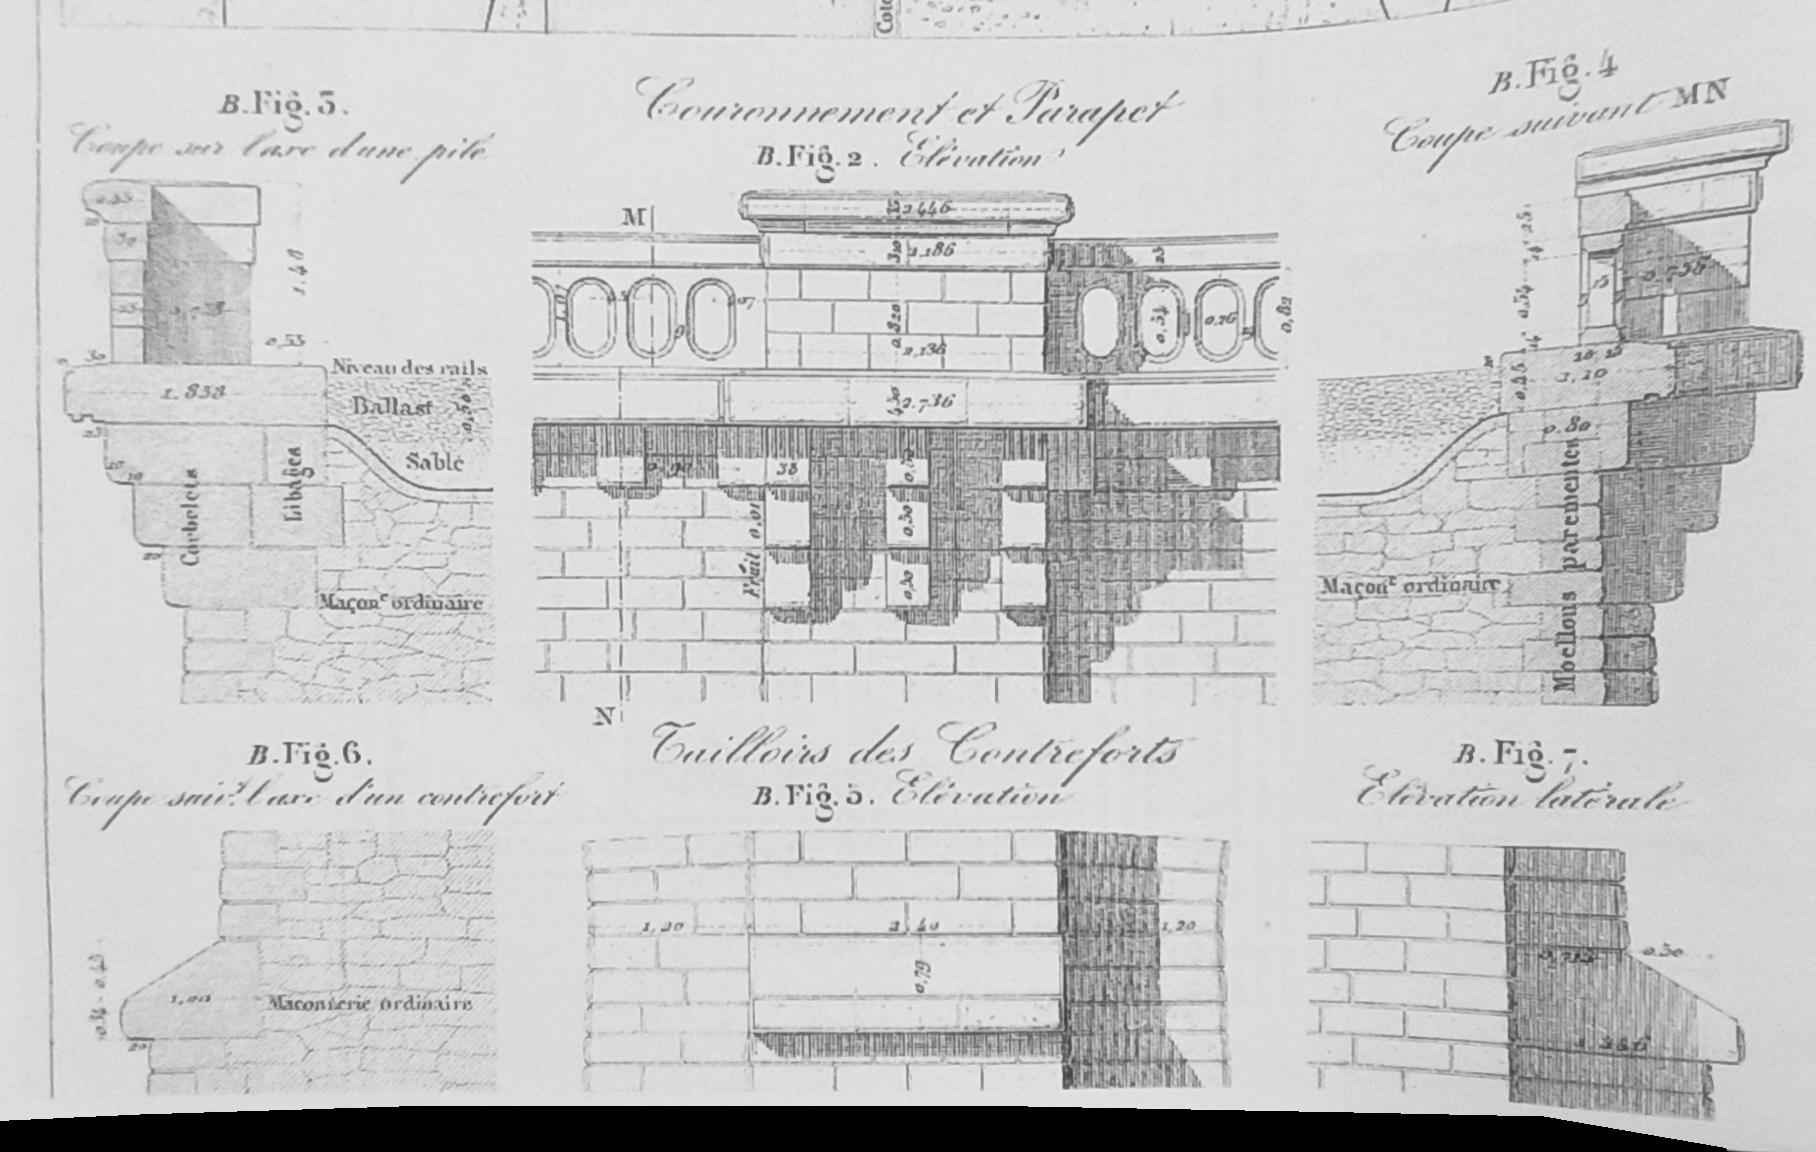 B.Fig.3.
Coupe sur l'axe d'une pile
Couronnement et Parapet
B.Fig.2. Elévation
B.Fig.4
Coupe suivant MN
M
2.446
2,186
0,820
2,136
2.736
0,54
0,26
0,82
1.48
0,738
0,53
1.838
Niveau des rails
Ballast
Sable
Corbelets
Libages
Maçon.e ordinaire
0,90
38
0,30
0,30
Fruit 0,01
N
0,54
0,738
10 15
1,10
0,80
Maçon.e ordinaire
Moellons parementés
B.Fig.6.
Coupe suiv.t l'axe d'un contrefort
Tailloirs des Contreforts
B.Fig.5. Elévation
B.Fig.7.
Elévation latérale
1,00
Maçonnerie ordinaire
20
1,20
2.40
1,20
0,79
0,50